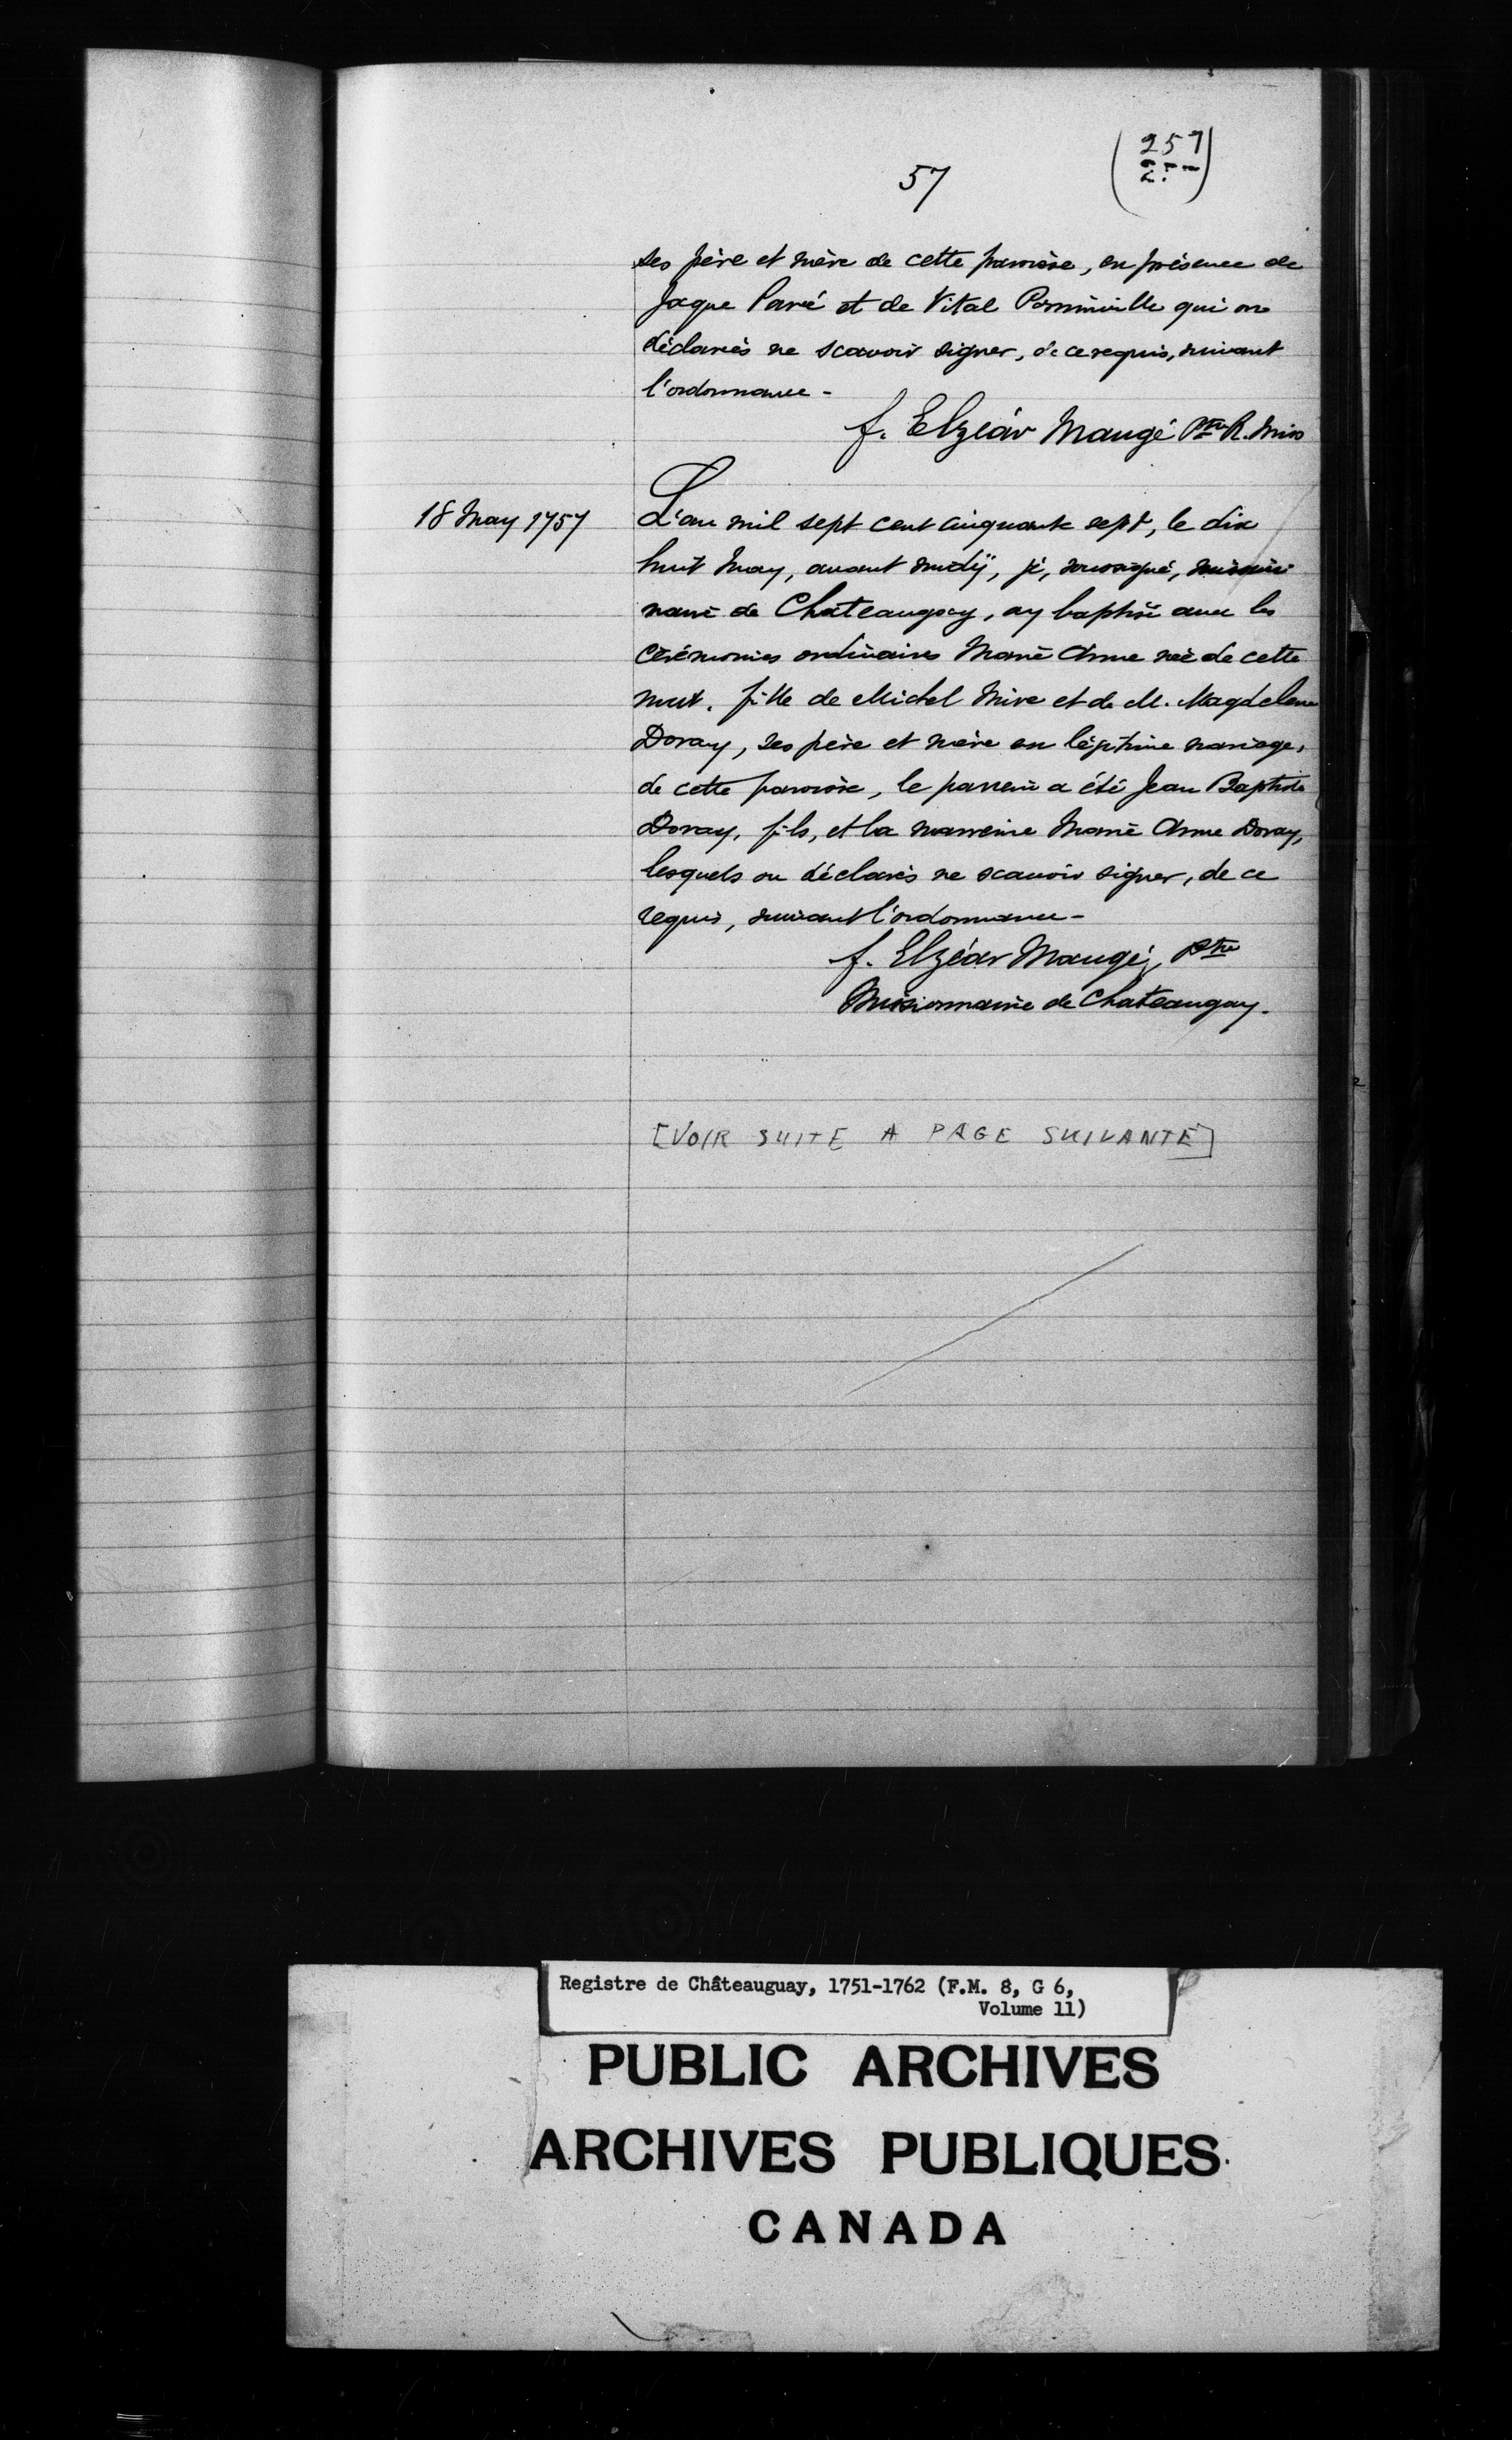 57
(257)
ses père et mère de cette paroisse, en présence de
Jaque Paré et de Vital Parminville qui on
déclarés ne scavoir signer, de ce requis, suivant
l'ordonnance -
f. Elzéar Maugé Ptre R. Miss
18 May 1757
L'an mil sept cent cinquante sept, le dix
huit May, avant midÿ, je, soussigné, missio
naire de Chateaugay, ay baptisé avec les
cérémonies ordinaires Marie Anne née de cette
nuit, fille de Michel Mire et de M. Magdelene
Doray, ses père et mère en légitime mariage,
de cette paroisse, le parrein a été Jean Baptiste
Doray, fils, et la marreine Marie Anne Doray,
lesquels on déclarés ne scauoir signer, de ce
requis, suivant l'ordonnance -
f. Elzéar Maugé, Ptre
Missionnaire de Chateaugay.
[VOIR SUITE A PAGE SUIVANTE]
Registre de Châteauguay, 1751-1762 (F.M. 8, G 6,
Volume 11)
PUBLIC ARCHIVES
ARCHIVES PUBLIQUES
CANADA